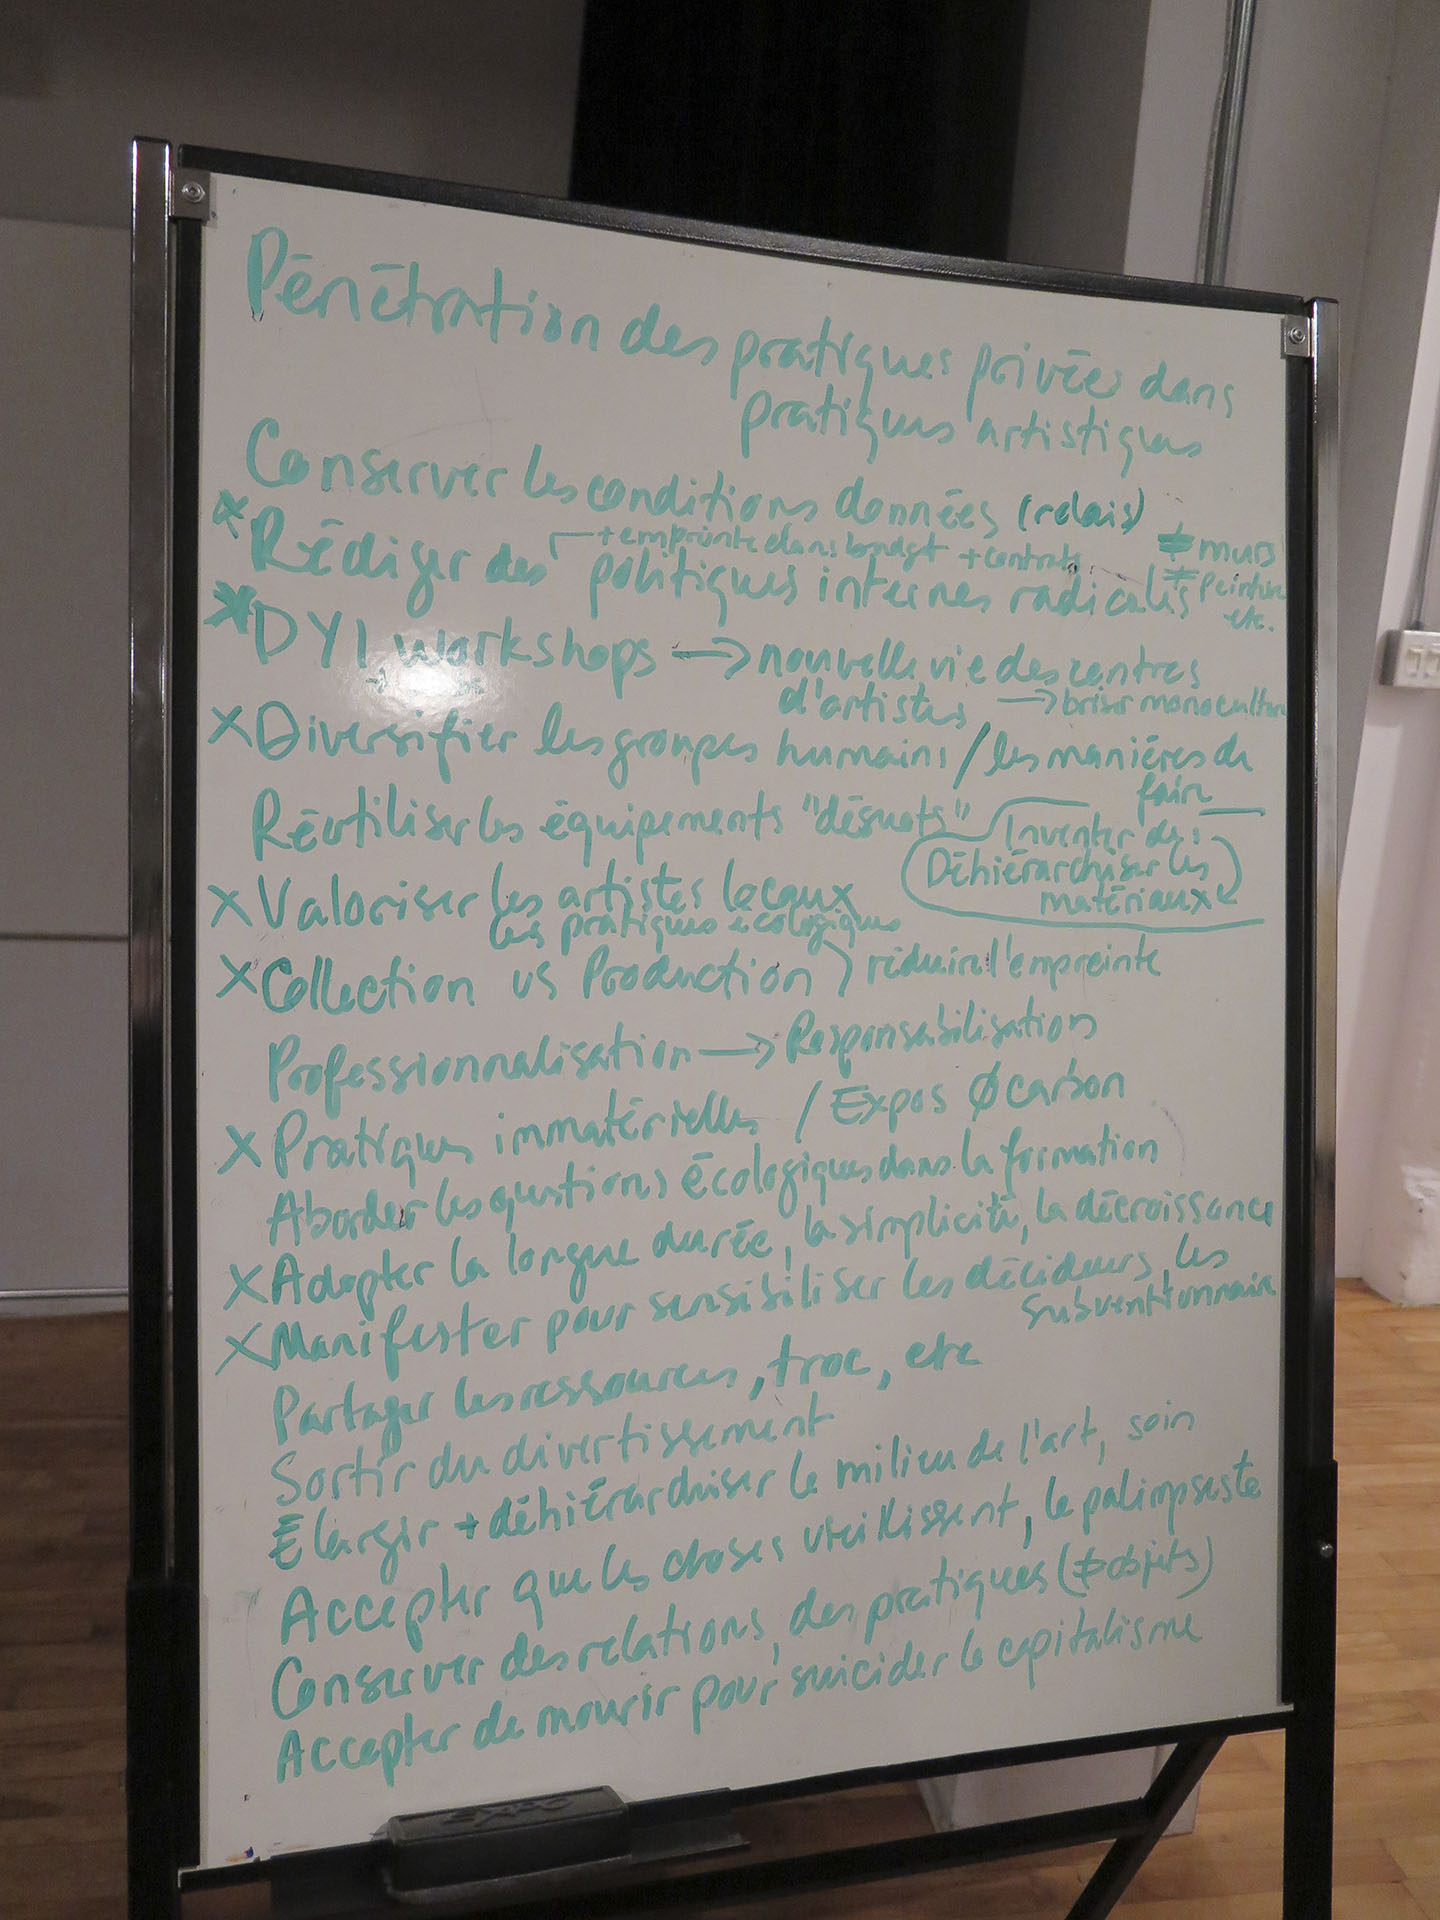 Pénétration des pratiques privées dans
pratiques artistiques
Conserver les conditions données (relais)
≠ murs
+ empreinte dans budget + contrats
≠ peinture
etc.
* Rédiger des politiques internes radicales
* DYI workshops → nouvelle vie des centres
d'artistes → briser monoculture
X Diversifier les groupes humains / les manières de
faire
Réutiliser les équipements "désuets"
Inventer des
Déhiérarchiser les
matériaux
X Valoriser les artistes locaux
les pratiques écologiques
X Collection vs Production ) réduire l'empreinte
Professionnalisation → Responsabilisation
X Pratiques immatérielles / Expos Ø carbon
Aborder les questions écologiques dans la formation
X Adopter la longue durée, la simplicité, la décroissance
X Manifester pour sensibiliser les décideurs, les
subventionnaire
Partager les ressources, troc, etc
Sortir du divertissement
Élargir + déhiérarchiser le milieu de l'art, soin
Accepter que les choses vieillissent, le palimpseste
Conserver des relations, des pratiques (≠ objets)
Accepter de mourir pour suicider le capitalisme